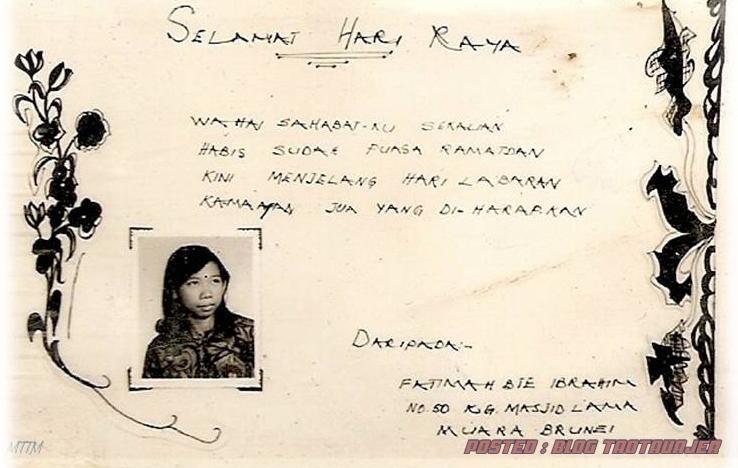 SELAMAT HARI RAYA
WAHAI SAHABAT-KU SEKALIAN
HABIS SUDAH PUASA RAMATDAN
KINI MENJELANG HARI LABARAN
KAMAAPAN JUA YANG DI-HARAPKAN
DARIPADA:-
FATIMAH BTE IBRAHIM
NO. 50 KG. MASJID LAMA
MUARA BRUNEI
MTTM
POSTED : BLOG TAOTAUAJER